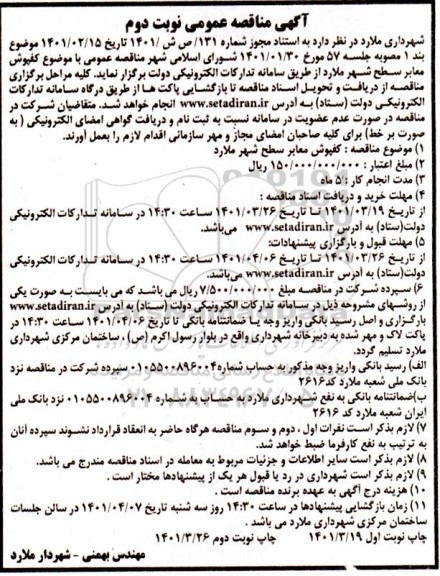 آگهی مناقصه عمومی نوبت دوم
شهرداری ملارد در نظر دارد به استناد مجوز شماره ۱۳۱/ ص ش /۱۴۰۱ تاریخ ۱۴۰۱/۰۲/۱۵ موضوع
بند ۱ مصوبه جلسه ۵۷ مورخ ۱۴۰۱/۰۱/۳۰ شورای اسلامی شهر مناقصه عمومی با موضوع کفپوش
معابر سطح شهر ملارد از طریق سامانه تدارکات الکترونیکی دولت برگزار نماید. کلیه مراحل برگزاری
مناقصه از دریافت و تحویل اسناد مناقصه تا بازگشایی پاکت ها از طریق درگاه سامانه تدارکات
الکترونیکی دولت (ستاد) به آدرس www.setadiran.ir انجام خواهد شد. متقاضیان شرکت در
مناقصه در صورت عدم عضویت در سامانه نسبت به ثبت نام و دریافت گواهی امضای الکترونیکی ( به
صورت بر خط) برای کلیه صاحبان امضای مجاز و مهر سازمانی اقدام لازم را بعمل آورند.
۱) موضوع مناقصه : کفپوش معابر سطح شهر ملارد
۲) مبلغ اعتبار : ۱۵۰/۰۰۰/۰۰۰/۰۰۰ ریال
۳) مدت انجام کار : ۵ ماه
۴) مهلت خرید و دریافت اسناد مناقصه :
از تاریخ ۱۴۰۱/۰۳/۱۹ تا تاریخ ۱۴۰۱/۰۳/۲۶ ساعت ۱۴:۳۰ در سامانه تدارکات الکترونیکی
دولت(ستاد) به آدرس www.setadiran.ir می‌باشد.
۵) مهلت قبول و بارگزاری پیشنهادات:
از تاریخ ۱۴۰۱/۰۳/۲۶ تا تاریخ ۱۴۰۱/۰۴/۰۶ ساعت ۱۴:۳۰ در سامانه تدارکات الکترونیکی
دولت(ستاد) به آدرس www.setadiran.ir می‌باشد.
۶) سپرده شرکت در مناقصه مبلغ ۷/۵۰۰/۰۰۰/۰۰۰ ریال می باشد که می بایست به صورت یکی
از روشهای مشروحه ذیل در سامانه تدارکات الکترونیکی دولت (ستاد) به آدرس www.setadiran.ir
بارگزاری و اصل رسید بانکی واریز وجه یا ضمانتنامه بانکی تا تاریخ ۱۴۰۱/۰۴/۰۶ ساعت ۱۴:۳۰ در
پاکت لاک و مهر شده به دبیرخانه شهرداری واقع در بلوار رسول اکرم (ص) ، ساختمان مرکزی شهرداری
ملارد تسلیم گردد.
الف) رسید بانکی واریز وجه مذکور به حساب شماره ۰۱۰۵۵۰۰۸۹۶۰۰۴ سپرده شرکت در مناقصه نزد
بانک ملی شعبه ملارد کد۲۶۱۶
ب)ضمانتنامه بانکی به نفع شهرداری ملارد به حساب به شماره ۰۱۰۵۵۰۰۸۹۶۰۰۴ نزد بانک ملی
ایران شعبه ملارد کد ۲۶۱۶
۷) لازم بذکر است نفرات اول ، دوم و سوم مناقصه هرگاه حاضر به انعقاد قرارداد نشوند سپرده آنان
به ترتیب به نفع کارفرما ضبط خواهد شد.
۸) لازم بذکر است سایر اطلاعات و جزئیات مربوط به معامله در اسناد مناقصه مندرج می باشد.
۹) لازم بذکر است شهرداری در رد یا قبول هر یک از پیشنهادها مختار است .
۱۰) هزینه درج آگهی به عهده برنده مناقصه است .
۱۱) زمان بازگشایی پیشنهادها در ساعت ۱۴:۳۰ روز سه شنبه تاریخ ۱۴۰۱/۰۴/۰۷ در سالن جلسات
ساختمان مرکزی شهرداری ملارد می باشد .
چاپ نوبت اول ۱۴۰۱/۳/۱۹ چاپ نوبت دوم ۱۴۰۱/۳/۲۶
مهندس بهمنی - شهردار ملارد